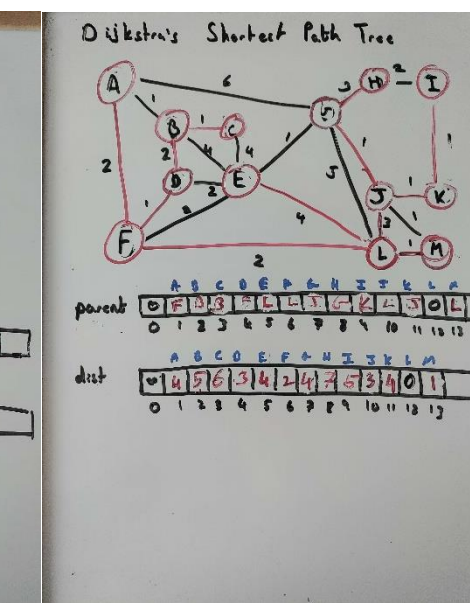 Dijkstra's Shortest Path Tree
A 6 H 2 I
1 B 1 C
2 2 4 4 1 5 1 1
D 2 E J 1 K
1 4 3 1
F 2 L 1 M
A B C D E F G H I J K L M
parent 0 F D B F L L J G K L J 0 L
0 1 2 3 4 5 6 7 8 9 10 11 12 13
A B C D E F G H I J K L M
dist 0 4 5 6 3 4 2 4 7 5 3 4 0 1
0 1 2 3 4 5 6 7 8 9 10 11 12 13